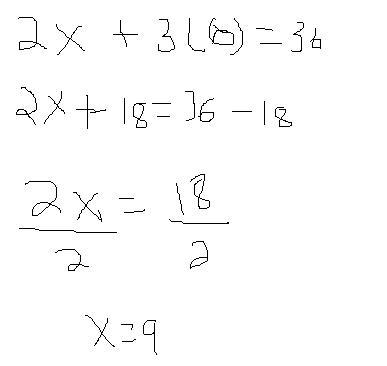 2x + 3(6) = 36
2x + 18 = 36 - 18
2x/2 = 18/2
x = 9